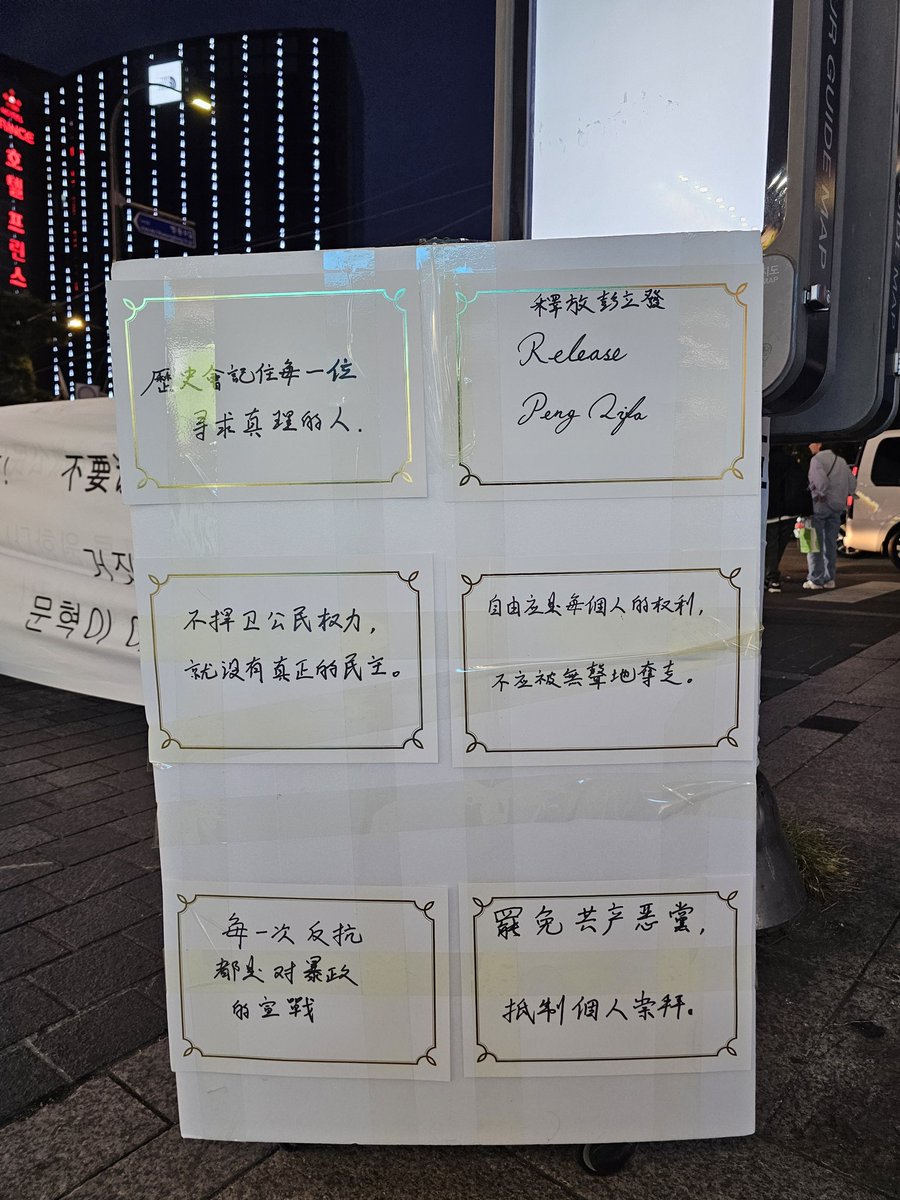 호텔프린스
OUR GUIDE MAP
歷史會記住每一位
寻求真理的人.
釋放彭立發
Release
Peng Lifa
不捍卫公民权力,
就没有真正的民主。
自由应是每個人的权利,
不应被無聲地奪走。
每一次反抗
都是对暴政
的宣戰
罷免共产恶黨,
抵制個人崇拜。
不要
거짓
문혁이